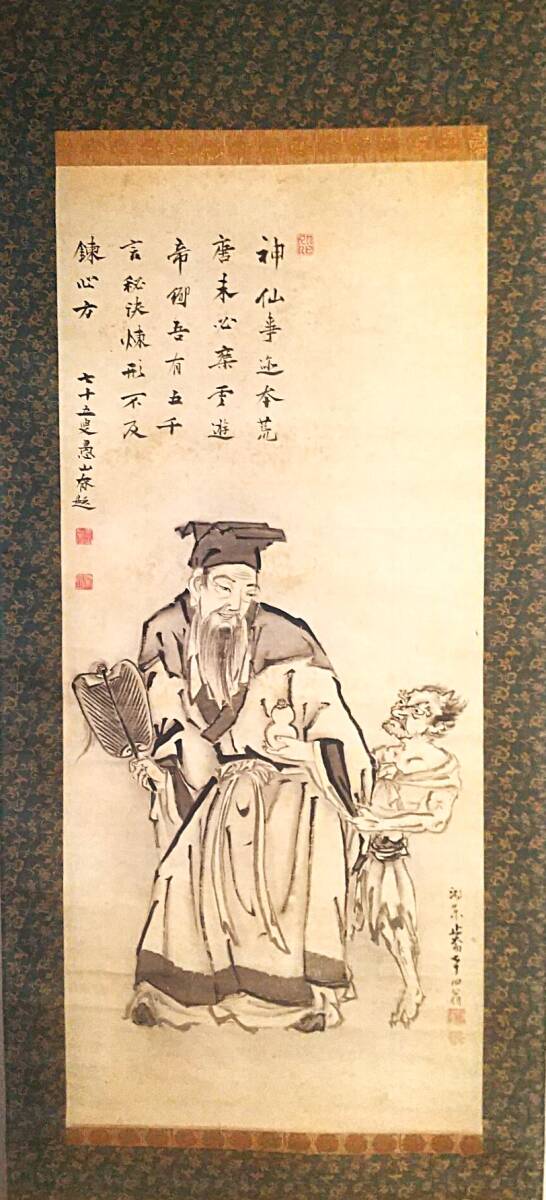 神仙事迹本荒
唐未必棄雲遊
帝鄉吾有五千
言秘訣煉形不及
鍊心方
七十五叟愚山 題
七十四翁